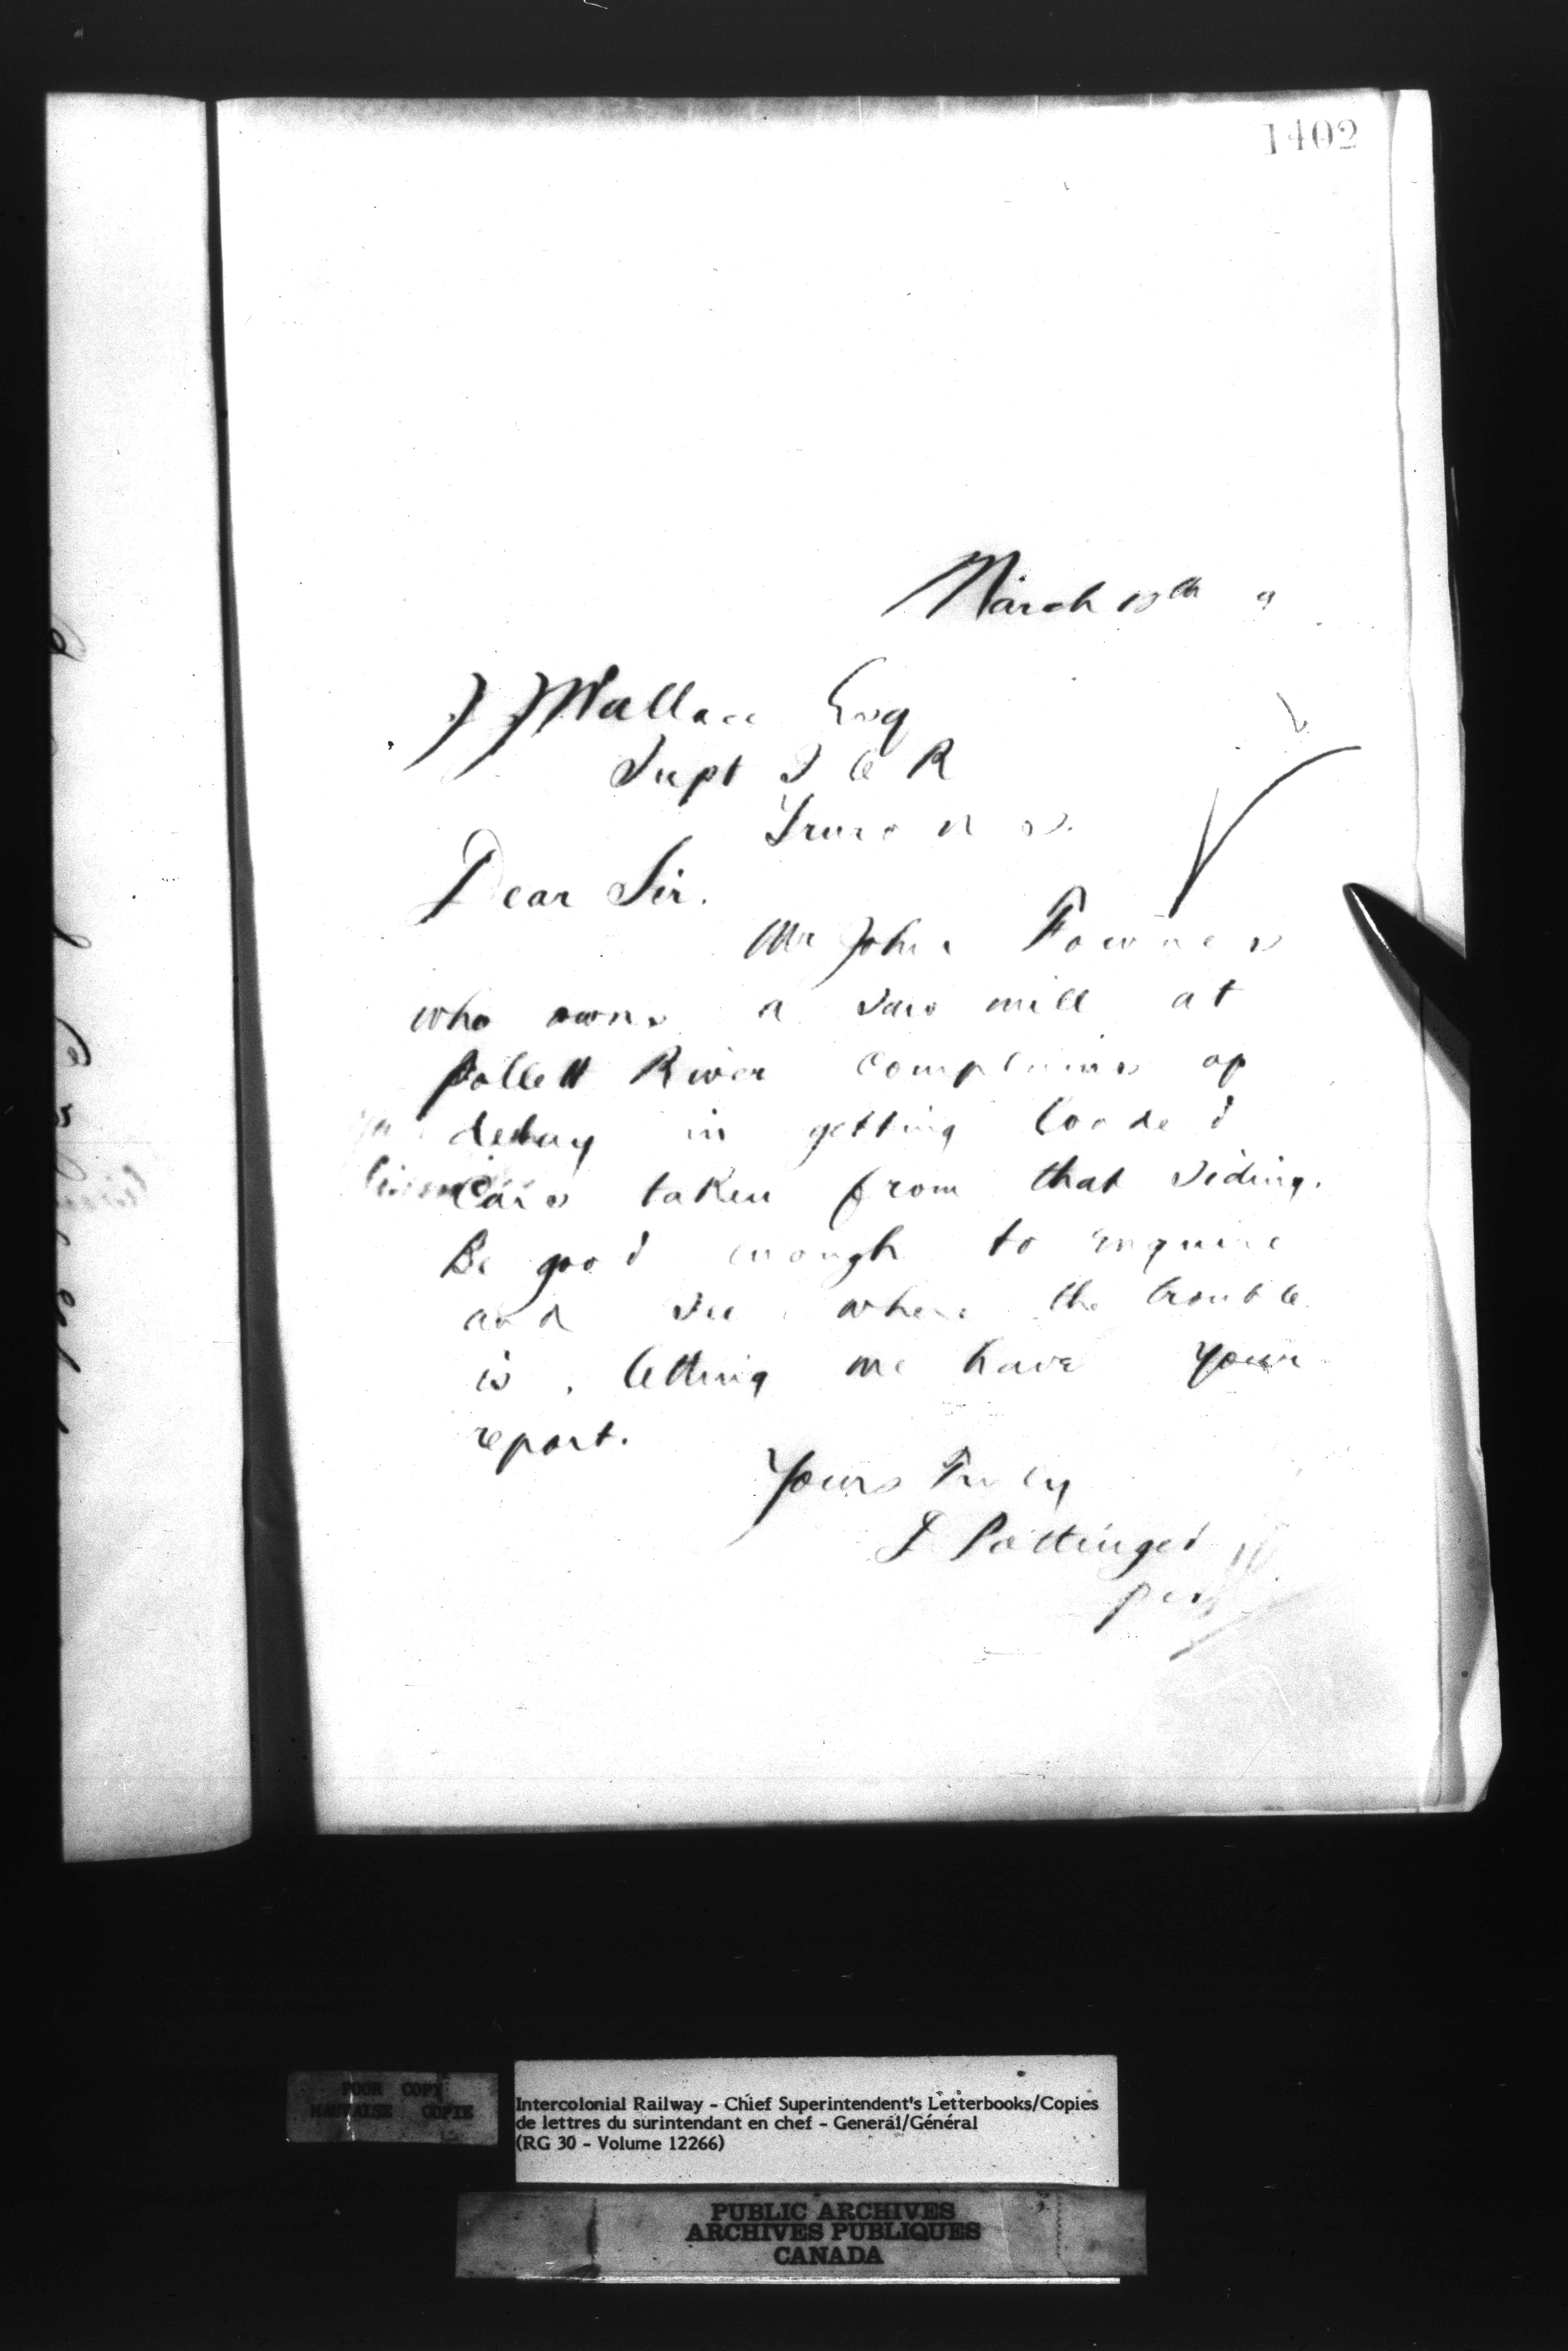 1402
March 10th 9
J J Wallace Esq
Supt I C R
Truro N S.
Dear Sir.
Mr John Fownes
who owns a saw mill at
Pollett River complains of
delay in getting loaded
cars taken from that siding.
Be good enough to enquire
and see where the trouble
is, letting me have your
report.
Yours Truly
D Pottinger
per
POOR COPY
MAUVAISE COPIE
Intercolonial Railway - Chief Superintendent's Letterbooks/Copies
de lettres du surintendant en chef - General/Général
(RG 30 - Volume 12266)
PUBLIC ARCHIVES
ARCHIVES PUBLIQUES
CANADA